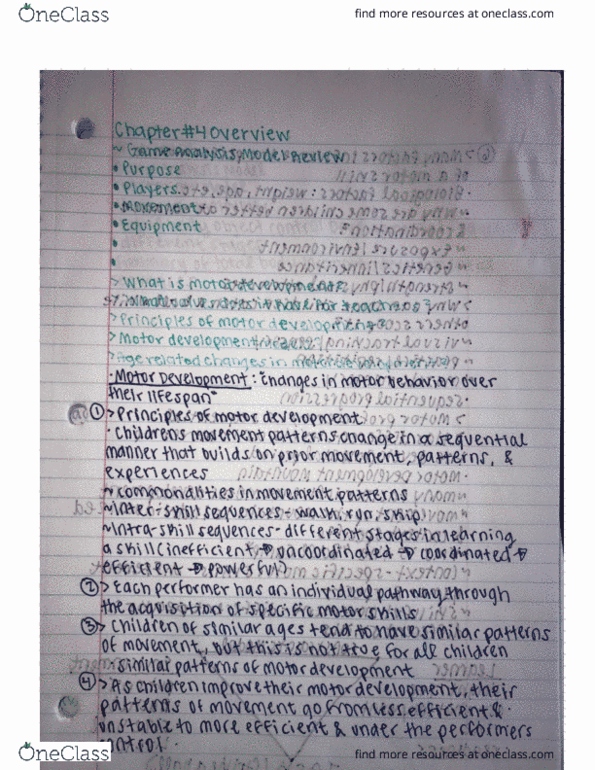 OneClass
find more resources at oneclass.com
Chapter #4 Overview
~ Game Analysis Model Review
• Purpose
• Players
• Movement
• Equipment
•
•
> What is motor development?
> Principles of motor development
> Motor development
> Age related changes in motor
- Motor Development: Changes in motor behavior over
their lifespan
① > Principles of motor development
- Childrens movement patterns change in a sequential
manner that builds on prior movement, patterns, &
experiences
~ commonalities in movement patterns
~ Inter-skill sequences - walk, run, skip
~ Intra-skill sequences - different stages in learning
a skill (inefficient → uncoordinated → coordinated →
efficient → powerful)
② > Each performer has an individual pathway through
the acquisition of specific motor skills
③ > Children of similar ages tend to have similar patterns
of movement, but this is not true for all children
- similar patterns of motor development
④ > As children improve their motor development, their
patterns of movement go from less efficient &
unstable to more efficient & under the performers
control.
OneClass
find more resources at oneclass.com